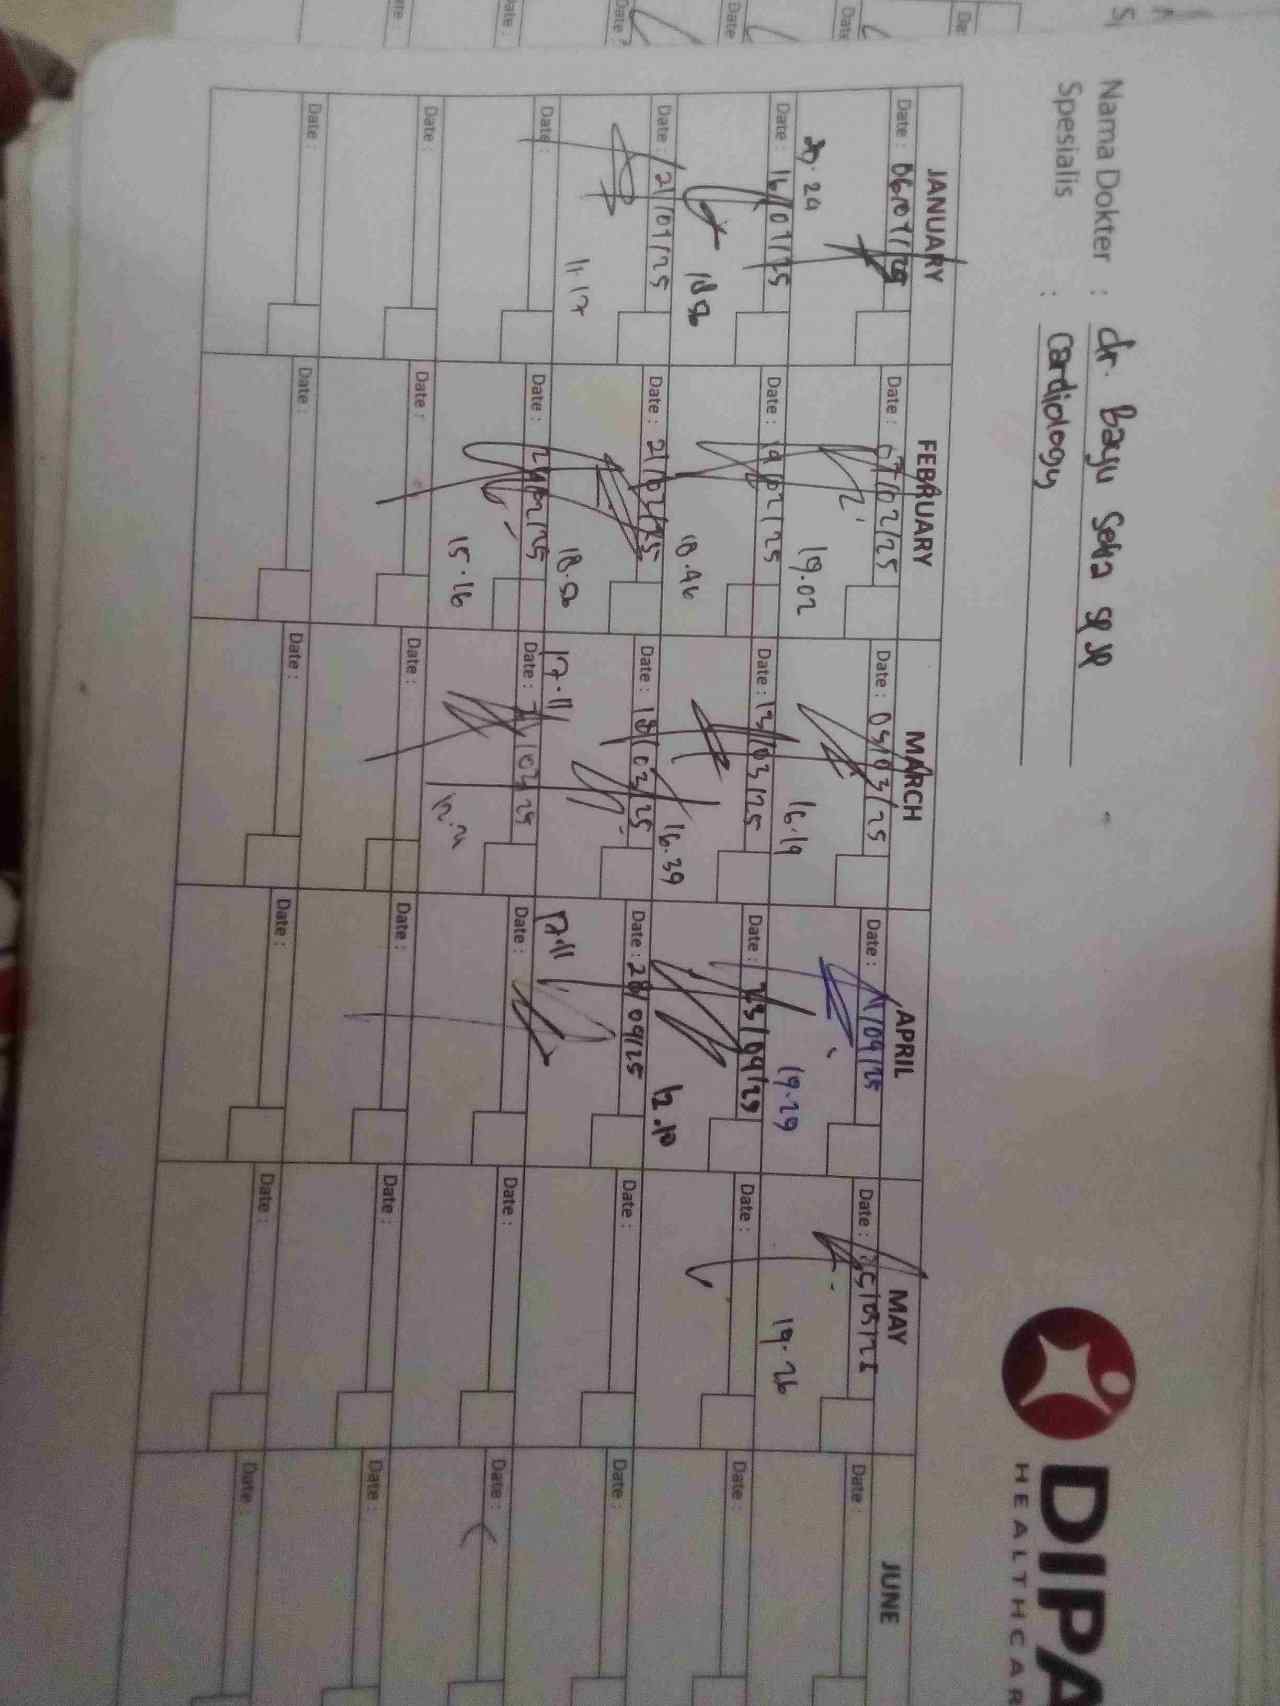 Nama Dokter : dr. Bayu Setia Sp JP
Spesialis : Cardiology
DIPA
HEALTHCAR
JANUARY FEBRUARY MARCH APRIL MAY JUNE
Date : 06/01/25 Date : 07/02/25 Date : 05/03/25 Date : 11/04/25 Date : 05/05/25 Date :
20.24 19.02 16.19 19.29 19.26
Date : 16/01/25 Date : 14/02/25 Date : 13/03/25 Date : 23/04/25 Date : Date :
18.56 18.46 16.39 12.10
Date : 21/01/25 Date : 21/02/25 Date : 18/03/25 Date : 28/04/25 Date : Date :
11.17 18.56 17.11 17.11
Date : Date : 24/02/25 Date : /03/25 Date : Date : Date :
15.16
Date : Date : Date : Date : Date : Date :
Date : Date : Date : Date : Date : Date :